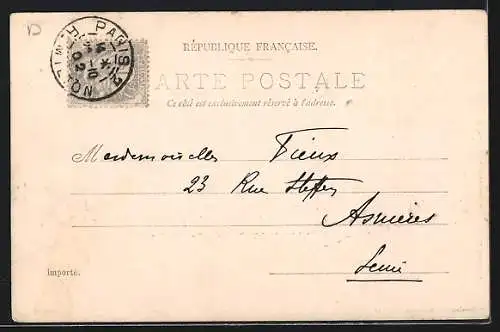 D
PARIS
RÉPUBLIQUE FRANÇAISE.
CARTE POSTALE
Ce côté est exclusivement réservé à l'adresse.
Mesdemoiselles Vieux
23 Rue Steffen
Asnières
Seine
importé.